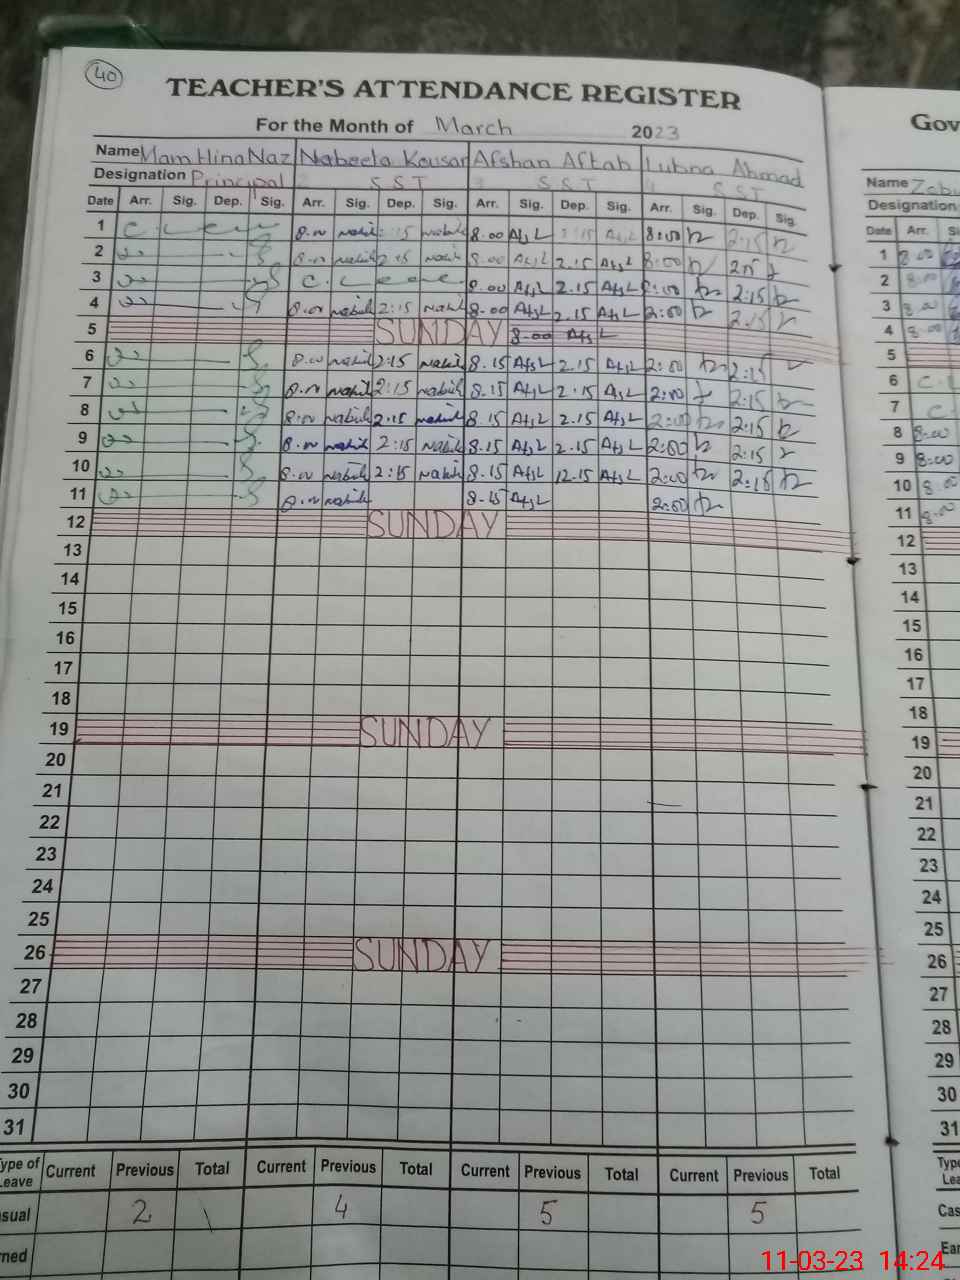 40
TEACHER'S ATTENDANCE REGISTER
For the Month of March 2023
Name Mam Hina Naz Nabeela Kousar Afshan Aftab Lubna Ahmad
Designation Principal SST SST SST
Date Arr. Sig. Dep. Sig. Arr. Sig. Dep. Sig. Arr. Sig. Dep. Sig. Arr. Sig. Dep. Sig.
1 C. Leave 8.00 nabil 2:15 nabil 8.00 Afs 2.15 Afs 8:00 2:15
2 8.00 nabil 2:15 nabil 8.00 Afs 2.15 Afs 8:00
3 C. Leave 8.00 Afs 2.15 Afs 2:15
4 8.00 nabil 2:15 nabil 8.00 Afs 2.15 Afs 2:00 2.15
5 SUNDAY 8.00 Afs
6 8.00 nabil 2:15 nabil 8.15 Afs 2.15 Afs 2:00 2:15
7 8.00 nabil 2:15 nabil 8.15 Afs 2.15 Afs 2:00 2:15
8 8.00 nabil 2:15 nabil 8.15 Afs 2.15 Afs 2:00 2:15
9 8.00 nabil 2:15 nabil 8.15 Afs 2.15 Afs 2:00 2:15
10 8.00 nabil 2:15 nabil 8.15 Afs 12.15 Afs 2:00 2:15
11 8.00 nabil 8.15 Afs 2:00
12 SUNDAY
13
14
15
16
17
18
19 SUNDAY
20
21
22
23
24
25
26 SUNDAY
27
28
29
30
31
Type of Leave Current Previous Total Current Previous Total Current Previous Total Current Previous Total
sual 2 4 5 5
ned
Gov
Name
Designation
Date Arr.
1 8.00
2 8.00
3 8.00
4 8:00
5
6 C.L
7 C.
8 8:00
9 8:00
10 8.00
11 8.00
12
13
14
15
16
17
18
19
20
21
22
23
24
25
26
27
28
29
30
31
Type
Lea
Cas
Ear
11-03-23 14:24